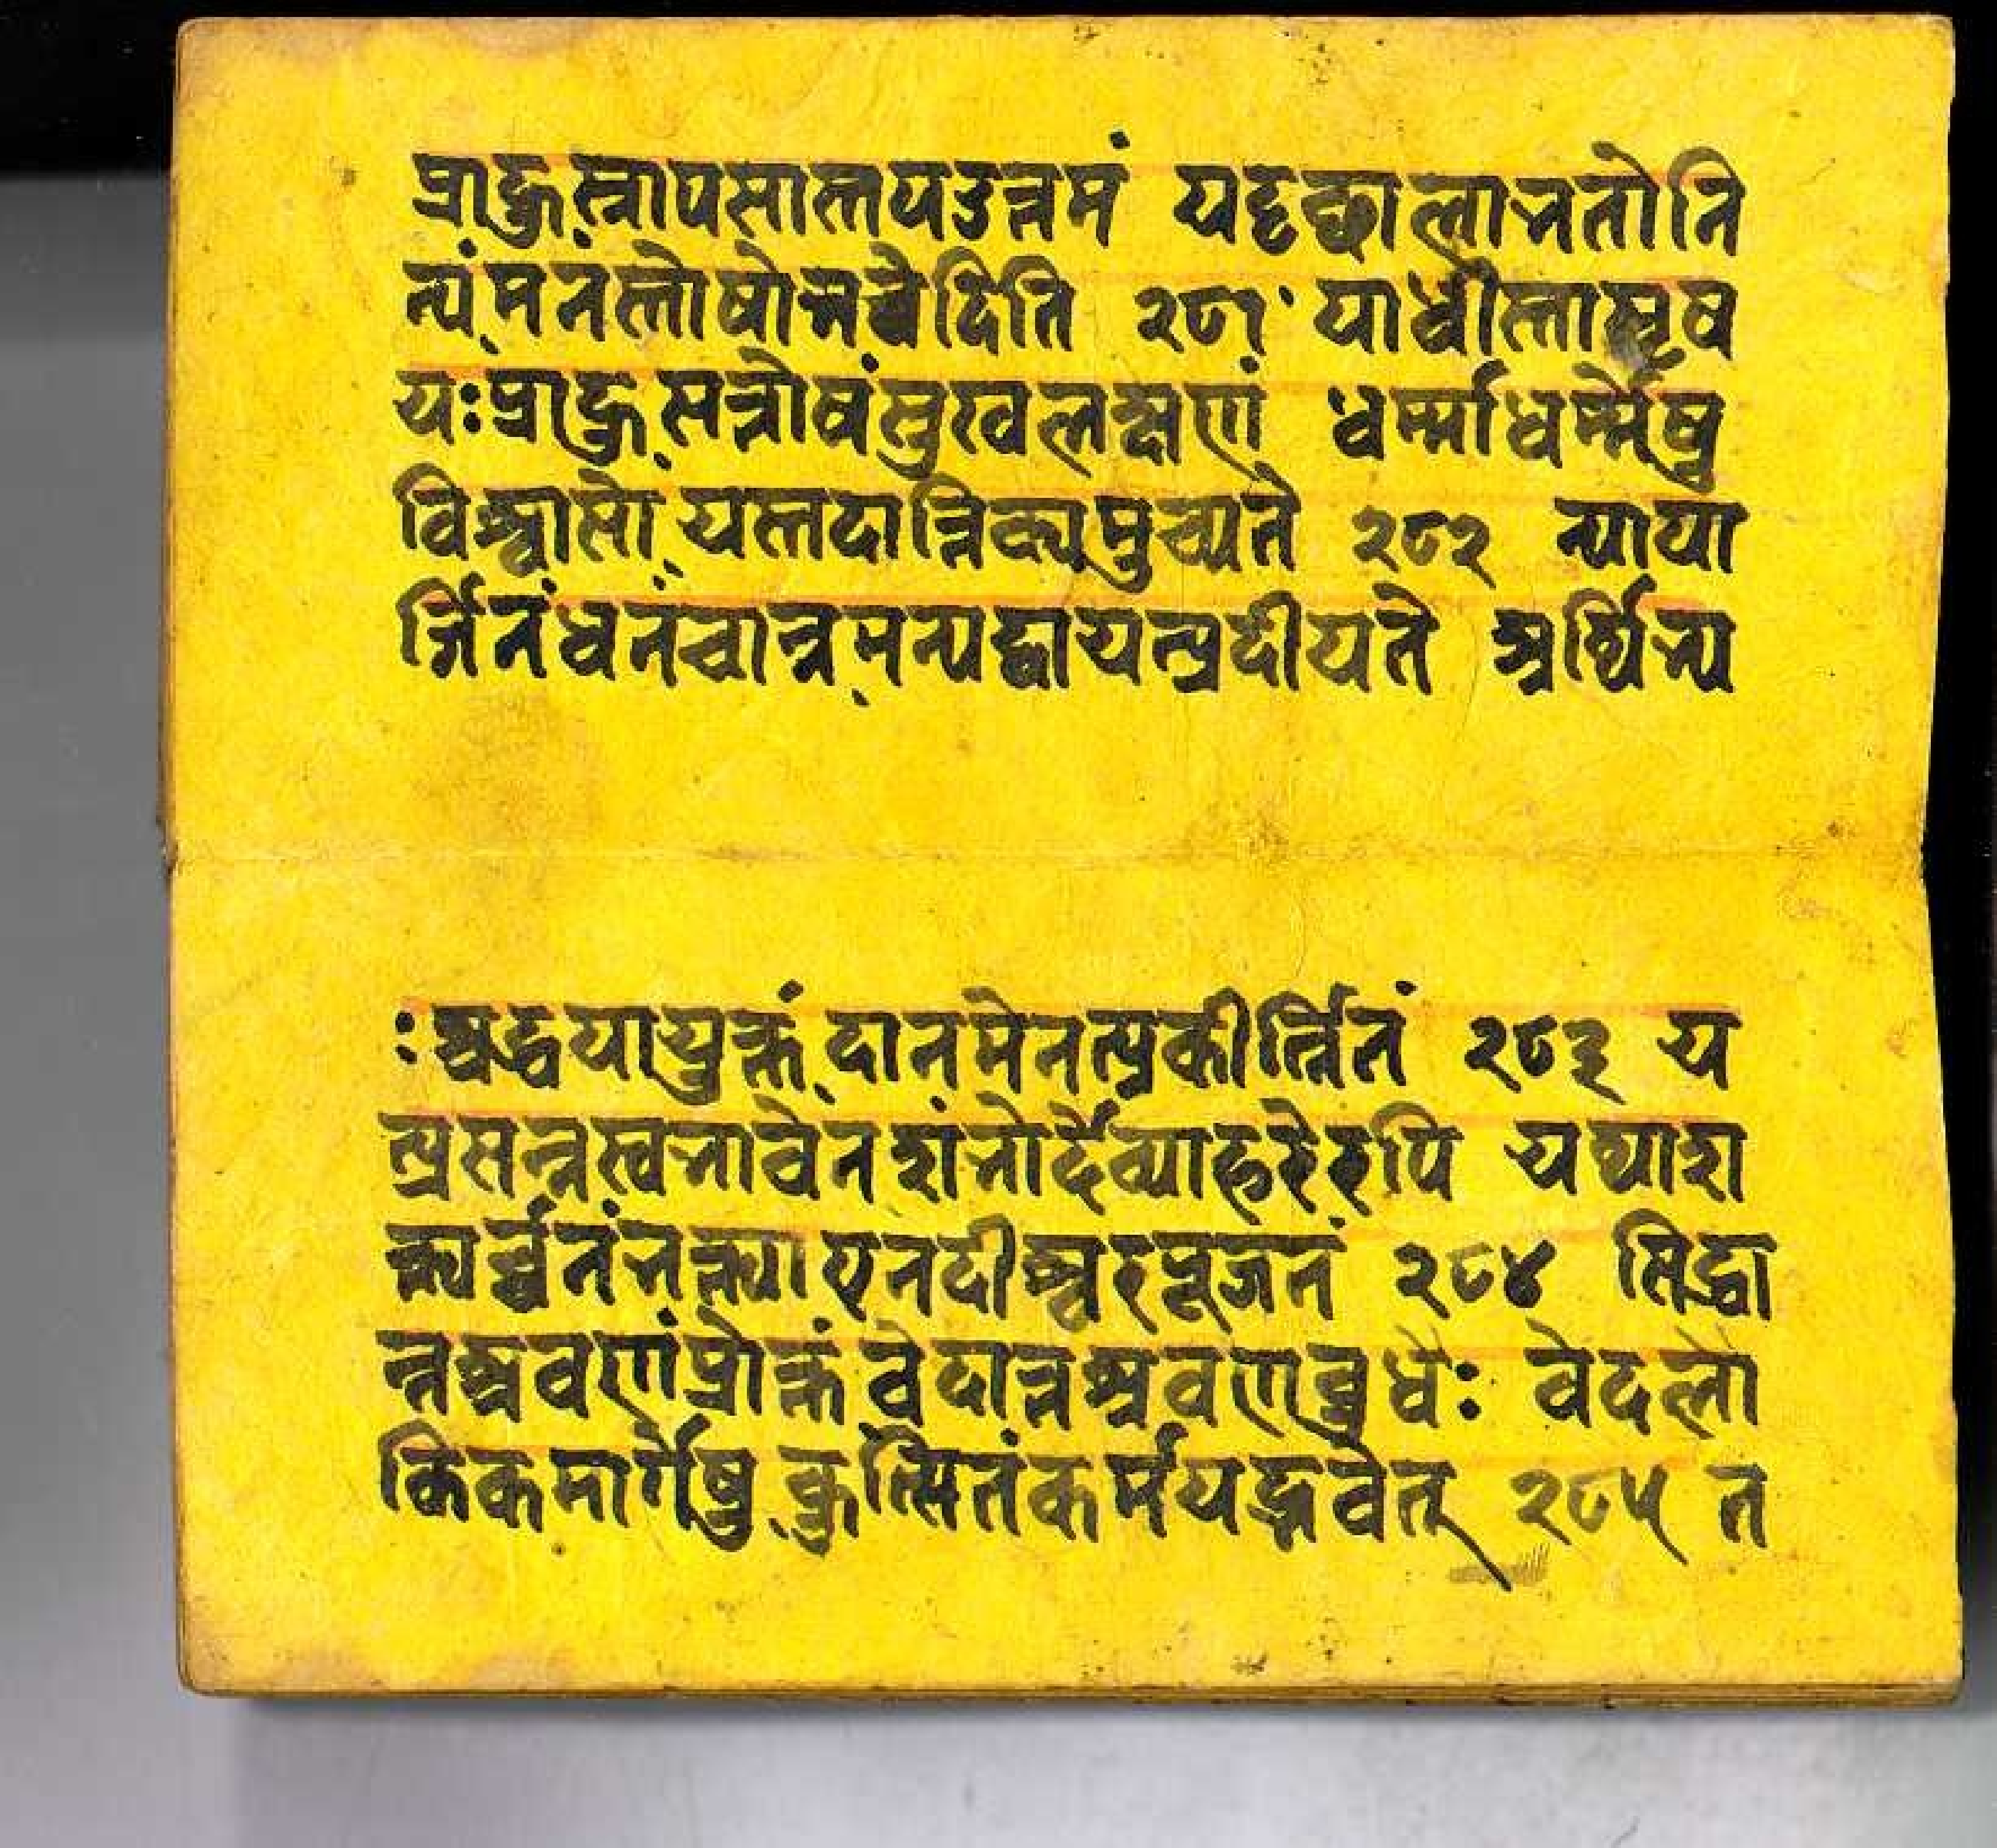 प्राहुस्तापसास्तपउत्तमं यदृच्छालाभतोनि
त्यंमनस्तोषोभवेदिति २८१ याधीस्तामृष
यःप्राहुसन्तोषंसुखलक्षणं धर्म्माधर्म्मेषु
विश्वासो यस्तदास्तिक्यमुच्यते २८२ न्याया
र्जितंधनंचान्नमन्यद्वायत्प्रदीयते अर्थिभ्य
ःश्रद्धयायुक्तं दानमेतत्प्रकीर्त्तितं २८३ य
त्प्रसन्नस्वभावेनशंभोर्देव्याहरेरपि यथाश
क्त्यर्च्चनंभक्त्या एतदीश्वरपूजनं २८४ सिद्धा
न्तश्रवणंप्रोक्तंवेदान्तश्रवणंबुधैः वेदलौ
किकमार्गेषु कुत्सितंकर्मयद्भवेत् २८५ त